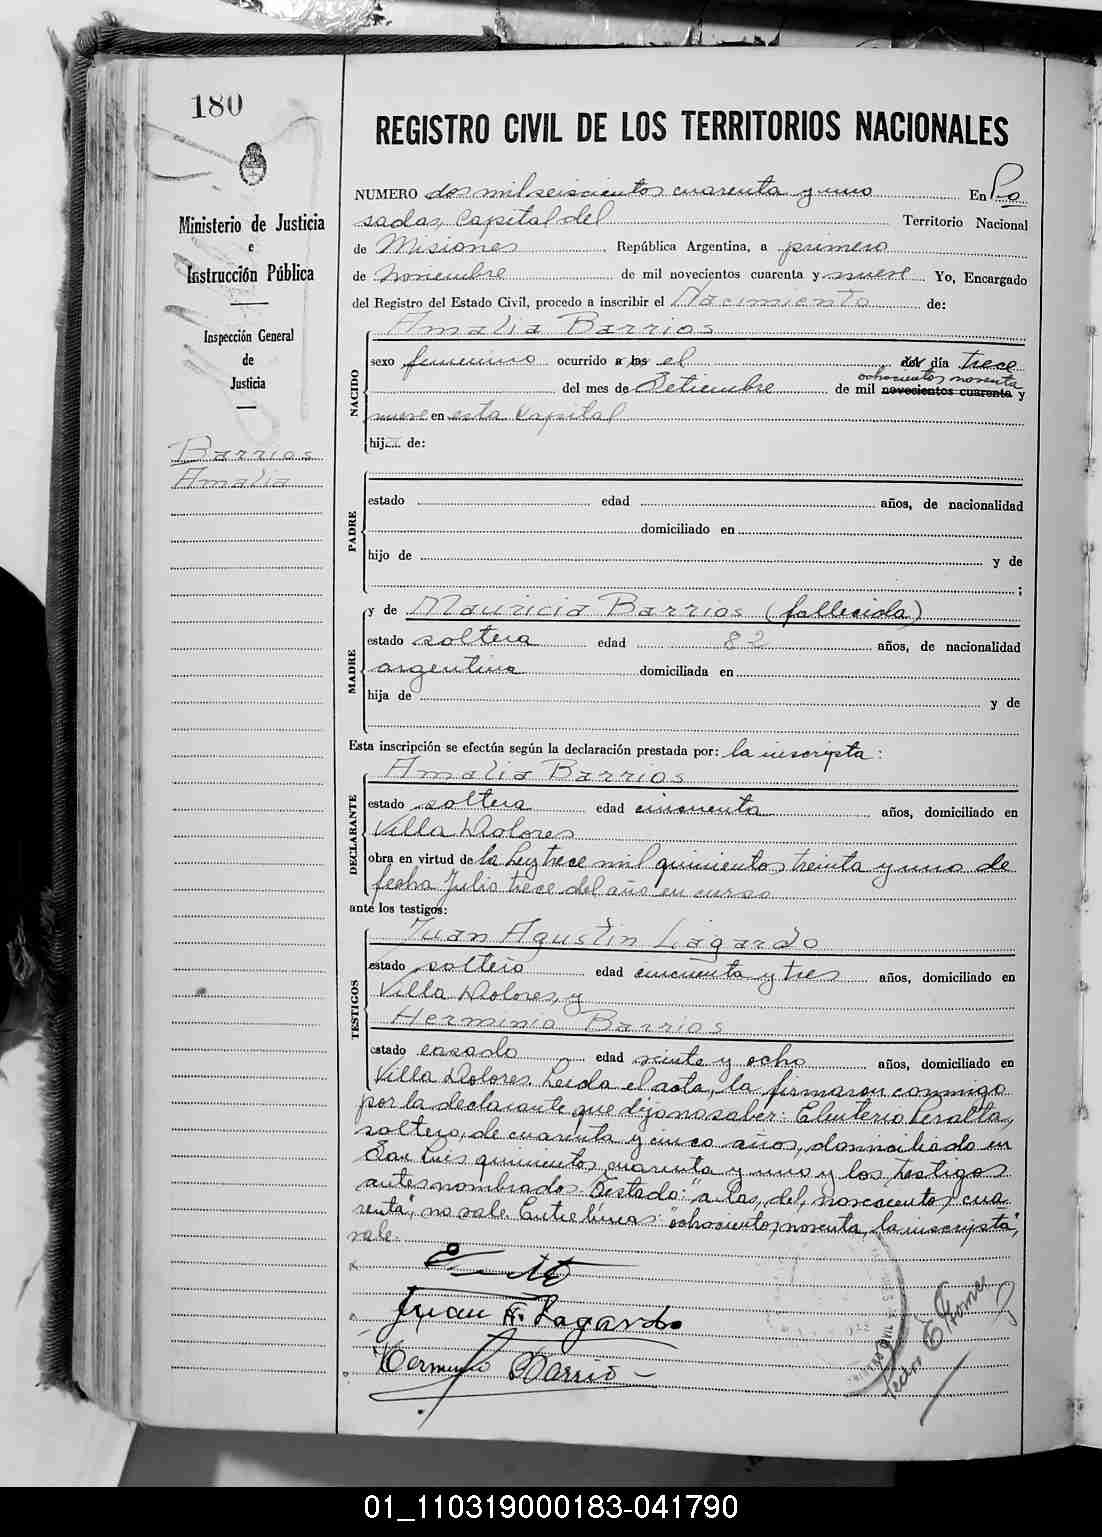 180
Ministerio de Justicia
e
Instrucción Pública
Inspección General
de
Justicia
Barrios
Amalia
REGISTRO CIVIL DE LOS TERRITORIOS NACIONALES
NUMERO dos mil seiscientos cuarenta y uno En Po
sadas, Capital del Territorio Nacional
de Misiones República Argentina, a primero
de Noviembre de mil novecientos cuarenta y nueve Yo, Encargado
del Registro del Estado Civil, procedo a inscribir el Nacimiento de:
NACIDO
Amalia Barrios
sexo femenino ocurrido a las el del día trece
ochocientos noventa
del mes de Setiembre de mil novecientos cuarenta y
nueve en esta Capital
hija de:
PADRE
estado edad años, de nacionalidad
domiciliado en
hijo de y de
;
MADRE
y de Mauricia Barrios (fallecida)
estado soltera edad 82 años, de nacionalidad
argentina domiciliada en
hija de y de
Esta inscripción se efectúa según la declaración prestada por: la inscripta:
DECLARANTE
Amalia Barrios
estado soltera edad cincuenta años, domiciliado en
Villa Dolores
obra en virtud de la Ley trece mil quinientos treinta y uno de
fecha Julio trece del año en curso
ante los testigos:
TESTIGOS
Juan Agustin Lagardo
estado soltero edad cincuenta y tres años, domiciliado en
Villa Dolores, y
Herminio Barrios
estado casado edad veinte y ocho años, domiciliado en
Villa Dolores. Leída el acta, la firmaron conmigo
por la declarante que dijo no saber: Eleuterio Peralta,
soltero, de cuarenta y cinco años, domiciliado en
San Luis quinientos cuarenta y uno y los testigos
antes nombrados. Testado: "a las, del, novecientos cua
renta", no vale. Entre líneas: "ochocientos noventa, la inscripta",
vale.
Juan A. Lagardo
Herminio Barrio
01_110319000183-041790